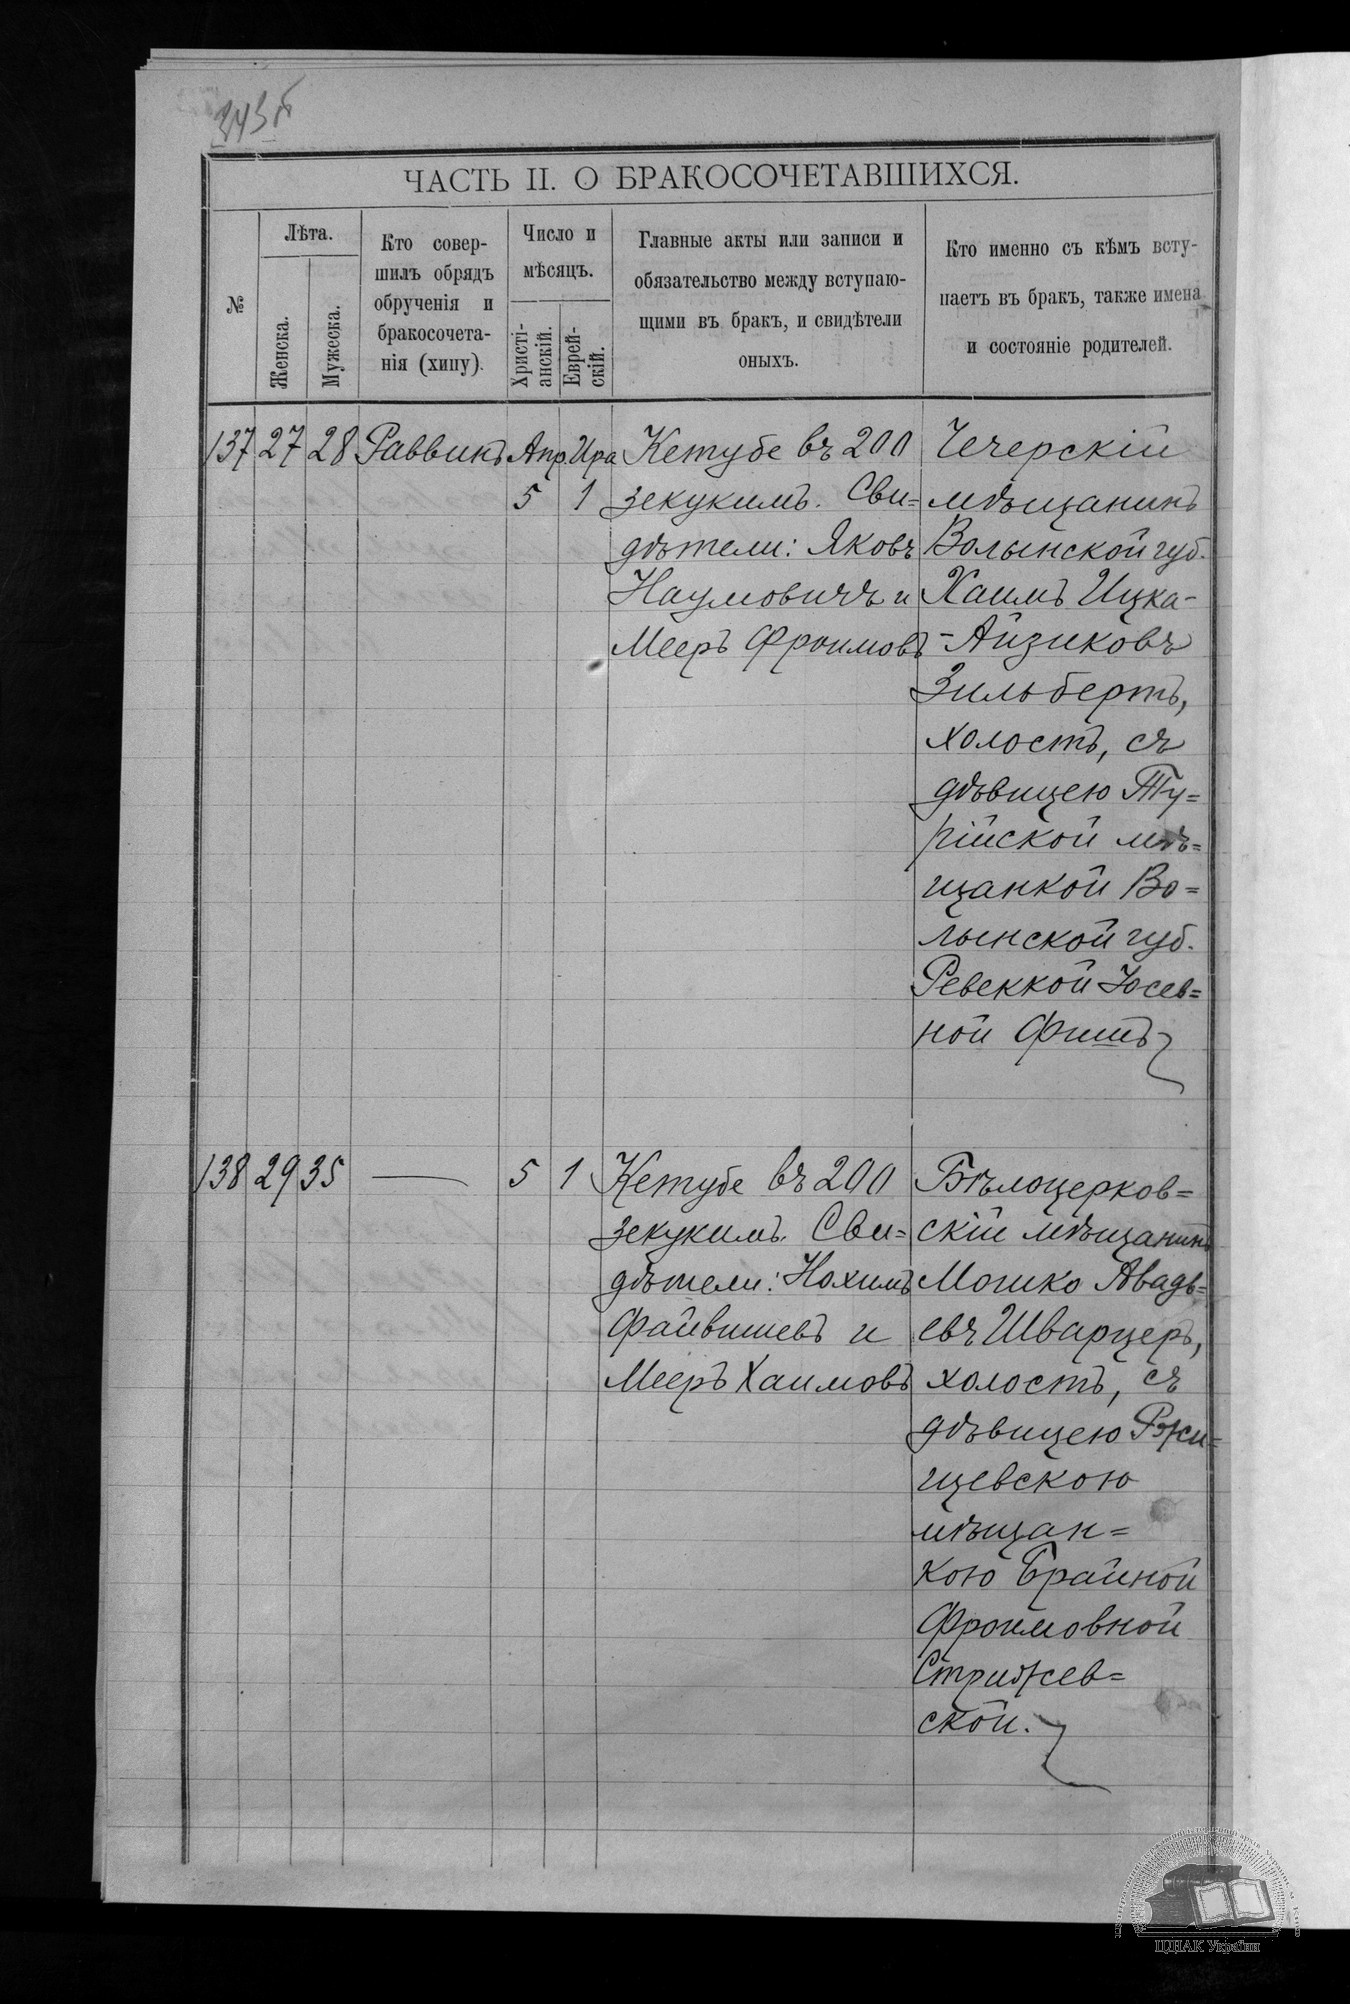 343б
ЧАСТЬ II. О БРАКОСОЧЕТАВШИХСЯ.
№
Лѣта.
Женска.
Мужеска.
Кто совер-
шилъ обрядъ
обрученія и
бракосочета-
нія (хипу).
Число и
мѣсяцъ.
Христі-
анскій.
Еврей-
скій.
Главные акты или записи и
обязательство между вступаю-
щими въ бракъ, и свидѣтели
оныхъ.
Кто именно съ кѣмъ всту-
паетъ въ бракъ, также имена
и состояніе родителей.
137 27 28 Раввинъ Апр. Ира
5 1
Кетубе въ 200
зекукимъ. Сви=
дѣтели: Яковъ
Наумовичъ и
Мееръ Фроимовъ
Чечерскій
мѣщанинъ
Волынской губ.
Хаимъ Ицка-
-Айзиковъ
Зильбертъ,
холостъ, съ
дѣвицею Ту=
рійской мѣ=
щанкой Во=
лынской губ.
Ревеккой Іосев=
ной Фишъ
138 29 35 — 5 1
Кетубе въ 200
зекукимъ. Сви=
дѣтели: Нохимъ
Файвишевъ и
Мееръ Хаимовъ
Бѣлоцерков=
скій мѣщанинъ
Мошко Авадь=
евъ Шварцеръ,
холостъ, съ
дѣвицею Ржи=
щевскою
мѣщан=
кою Брайной
Фроимовной
Стрижев=
ской.
ЦДІАК України